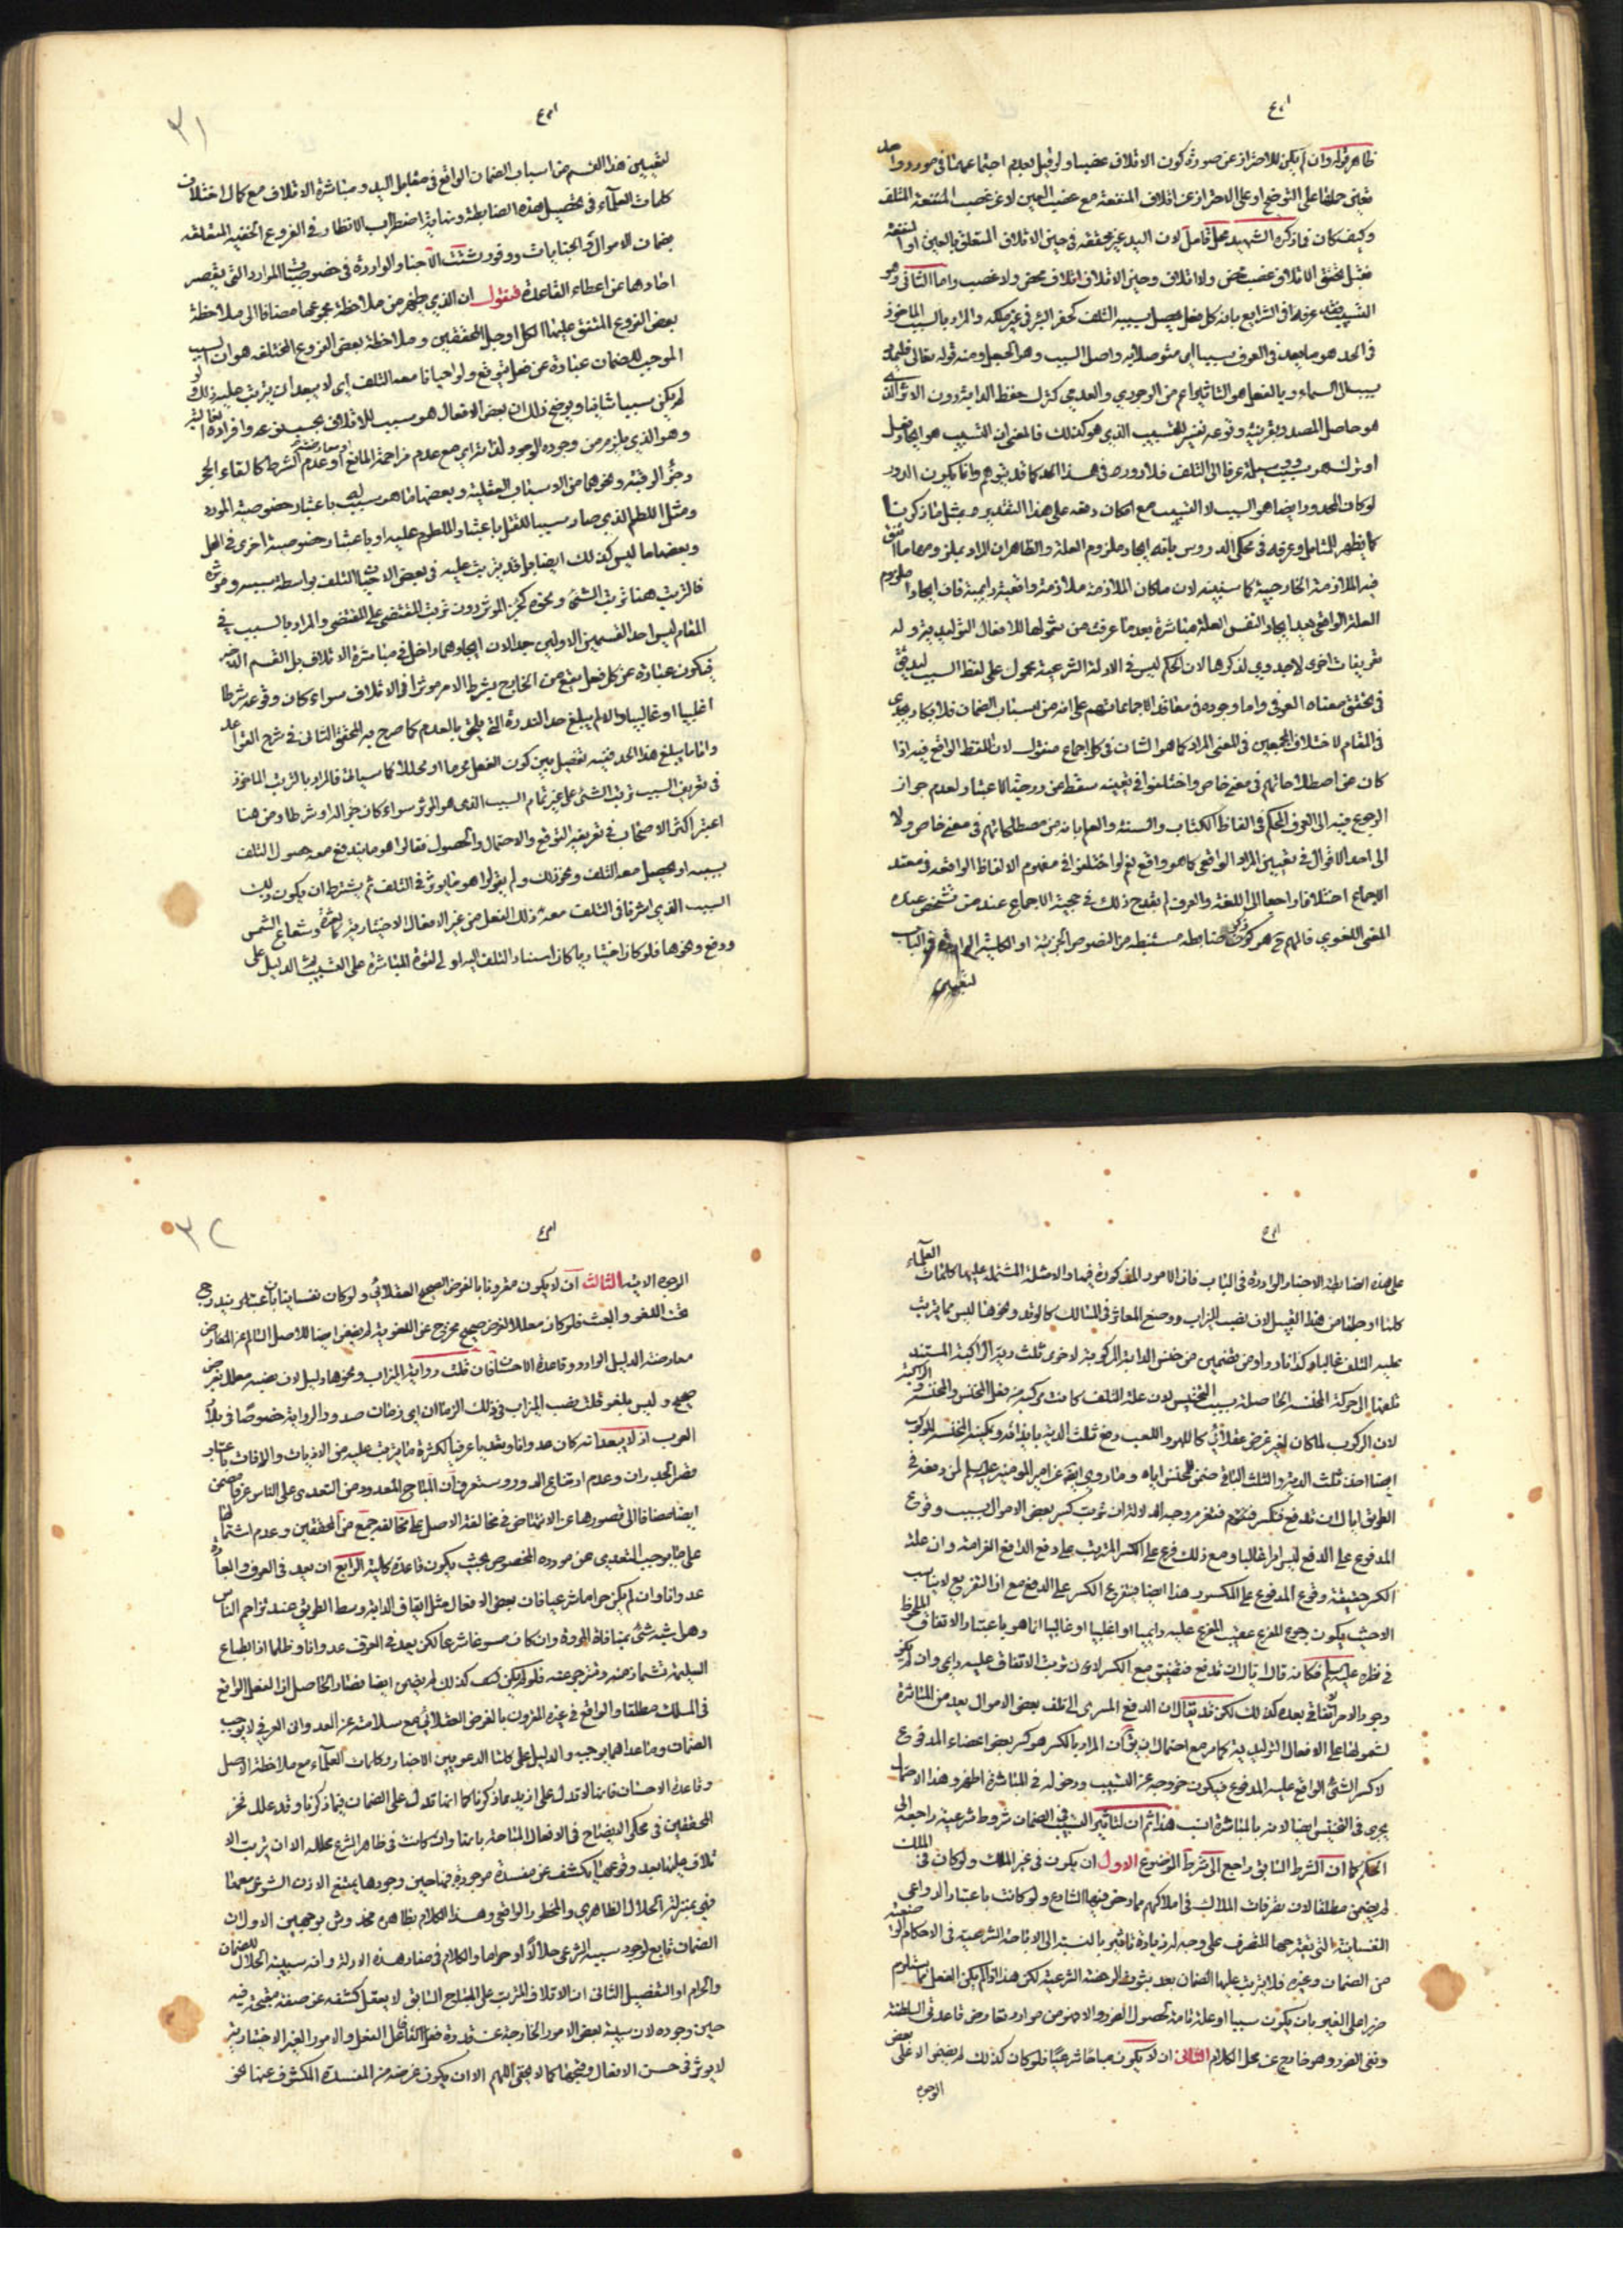 ظاهر قوله وان لم يكن للاحتراز عن صورة كون الاتلاف غصبا ولو قيل بعدم اجتماعهما في مورد واحد
تعين حملها على التوضيح او على الاحتراز عن اتلاف المنفعة مع غصب العين لا عن غصب المنفعة المتلفة
وكيف كان فما ذكره الشهيد محل تأمل لان اليد غير محققة في حين الاتلاف المتعلق بالعين او المنفعة
فقبل تحقق الاتلاف غصب محض ولا اتلاف وحين الاتلاف اتلاف محض ولا غصب واما الثاني وهو
التسبيب فقد عرفه في الشرايع بانه كل فعل يحصل بسببه التلف كحفر البئر في غير ملكه والمراد بالسبب الماخوذ
في الحد هو ما يعد في العرف سببا اي متوصلا به واصل السبب وهو الحبل ومنه قوله تعالى فليمدد
بسبب الى السماء وبالفعل هو التاثير اعم من الوجودي والعدمي كترك حفظ الدابة دون الاثر الذي
هو حاصل المصدر بقرينة وقوعه تفسيرا للتسبيب الذي هو كذلك فالمعنى ان التسبيب هو ايجاد فعل
او ترك هو سبب ووسيلة عرفا الى التلف فلا دور في هذا الحد كما قد يتوهم وانما يكون الدور
لو كان المحدود ايضا هو السبب لا التسبيب مع امكان دفعه على هذا التقدير بمثل ما ذكرنا
كما يظهر للمتامل وعرفه في محكي الدروس بانه ايجاد ملزوم العلة والظاهر ان المراد بملزومها ما اتفق
فيه الملازمة الخارجية كما سنبينه لان ما كان الملازمة ملازمة واقعية دايمية فان ايجاد ملزوم
العلة الواقعي يعد ايجادا لنفس العلة مباشرة بعد ما عرفت من شمولها للافعال التوليدية وله
تعريفات اخرى لا جدوى لذكرها لان الحكم ليس في الادلة الشرعية محمول على لفظ السبب ليدقق
في تحقق معناه العرفي واما وجوده في معاقد الاجماعات فهم على انه من اسباب الضمان فلا يكاد يجدي
في المقام لاختلاف المجمعين في المعنى المراد كما هو الشان في كل اجماع منقول لان اللفظ الواقع فيه اذا
كان من اصطلاحاتهم في معنى خاص واختلفوا في تعيينه سقط عن درجة الاعتبار لعدم جواز
الرجوع فيه الى العرف المحكم في الفاظ الكتاب والسنة والعلم بانه من مصطلحاتهم في معنى خاص ولا
الى احد الاقوال في تعيين المراد الواقعي كما هو واقع نعم لو اختلفوا في مفهوم الالفاظ الواقعة في معقد
الاجماع اختلافا راجعا الى اللغة والعرف لم يقدح ذلك في حجية الاجماع عند من تشخص عنده
المعنى اللغوي فالمهم ح هو كون ضابطة مستنبطة من النصوص الجزئية او الكلية الواردة في الباب
لتعيين
٣١
لتعيين هذا القسم من اسباب الضمان الواقع في مقابل اليد ومباشرة الاتلاف مع كمال اختلاف
كلمات العلماء في تحصيل هذه الضابطة ونهاية اضطراب الانظار في الفروع الخفية المتعلقة
بضمان الاموال والجنايات ووفور شتت الاخبار الواردة في خصوصيات الموارد التي يقصر
احادها عن اعطاء القاعدة فنقول ان الذي يظهر من ملاحظة مجموعها مضافا الى ملاحظة
بعض الفروع المتفق عليها الكل او جل المحققين وملاحظة بعض الفروع المختلفة هو ان السبب
الموجب للضمان عبارة عن فعل يتوقع ولو احيانا معه التلف اي لا يبعد ان يترتب عليه ذلك ولو
لم يكن سببا شانيا وتوضيح ذلك ان بعض الافعال هو سبب للاتلاف بحسب نوعه وافراده الغالبية
وهو الذي يلزم من وجوده الوجود لذاته اي مع عدم مزاحمة المانع او عدم الشرط كالقاء الحجر
وحز الرقبة ونحوهما من الاسباب العقلية وبعضها ما هو سبب باعتبار خصوصية المورد
ومثل اللطم الذي صار سببا للقتل باعتبار الملطوم عليه او باعتبار خصوصية اخرى في المحل
وبعضها ما ليس كذلك ايضا بل قد يترتب عليه في بعض الاحيان التلف بواسطة سببه ومؤثره
فالترتب هنا ترتب الشئ ونحوه كجزء المؤثر دون ترتب المقتضى على المقتضي والمراد بالسبب في
المقام ليس احد القسمين الاولين جدا لان ايجادهما داخل في مباشرة الاتلاف بل القسم الاخير
فيكون عبارة عن كل فعل يقع من الخارج بشرط لامر مؤثر في الاتلاف سواء كان وقوعه شرطا
اغلبيا او غالبيا والا لم يبلغ حد الندرة التي يلحق بالعدم كما صرح به المحقق الثاني في شرح القواعد
واما ما يبلغ هذا الحد ففيه تفصيل بين كون الفعل محرما او محللا كما سيأتي فالمراد بالترتب الماخوذ
في تعريف السبب ترتب الشئ على غير تمام السبب الذي هو المؤثر سواء كان جزءا له او شرطا ومن هنا
اعتبر اكثر الاصحاب في تعريفه التوقع والاحتمال والحصول فقالوا هو ما يتوقع معه حصول التلف
بسببه او يحصل معه التلف ونحو ذلك ولم يقولوا هو ما يؤثر في التلف ثم يشترط ان يكون ذلك
السبب الذي اثر في التلف معه ذلك الفعل من غير الافعال الاختيارية كالعثرة وشعاع الشمس
ودفع ونحوها فلو كان اختياريا كان اسناد التلف اليه اولى لقوة المباشرة على التسبيب والدليل على
العلماء
على هذه الضابطة الاخبار الواردة في الباب فان الامور المذكورة فيها والامثلة المشتملة عليها كلمات
كلها او جلها من هذا القبيل لان نصب الميزاب ووضع المعاثر في المسالك كالوتد ونحوها ليس مما يترتب
عليه التلف غالبا وكذا ما ورد من تضمين من نخس الدابة المركوبة لاخرى ثلث دية الراكبة المستند
تلفها الى حركة المنخوسة الحاصلة بسبب النخس لان علة التلف كانت مركبة من فعل الناخس والمنخوسة والراكبة
لان الركوب لما كان لغير غرض عقلائي كاللهو واللعب وضع ثلث الدية بازائه ولم يكن للمنخوسة للركوب
ايضا اخذ ثلث الدية والثلث الباقي ضمن الناخس اياه وما روي ايضا عن امير المؤمنين عليه السلم لمن دفعه في
الطريق اياك ان تدفع فتكسر فتغرم وجه الدلالة ان ترتب كسر بعض الاموال بسبب وقوع
المدفوع على الدفع ليس امرا غالبا ومع ذلك فرع على الكسر المترتب على دفع الدافع الغرامة وان علة
الكسر حقيقة وقوع المدفوع على المكسور هذا ايضا فيتفرع الكسر على الدفع مع اذ التفريع لا يناسب
الا حيث يكون وجود المفرع عقيب المفرع عليه دايميا او اغلبيا او غالبيا انما هو باعتبار الاتفاق الملحوظ
في نظره عليه السلم فكانه قال اياك ان تدفع فيتفق مع الكسر لا دون ترتب الاتفاق عليه دايما وان لم يكن
وجود الامر اتفاقي بعده كذلك لكن قد يقال ان الدفع المسري الى تلف بعض الاموال يعد من المباشرة
لشمولها على الافعال التوليدية كما مر مع احتمال ان يقال ان المراد بالكسر هو كسر بعض اعضاء المدفوع
لا كسر الشئ الواقع عليه المدفوع فيكون خروجه عن التسبيب ودخوله في المباشرة اظهر وهذا الاحتمال
يجري في التخنيس ايضا لانه بالمباشرة انسب هذا ثم ان لتاثير التسبيب في الضمان شروط شرعية راجعة الى
الحكم كما ان الشرط السابق راجع الى شرط الموضوع الاول ان يكون في غير الملك ولو كان في الملك
لم يضمن مطلقا لان تصرفات الملاك في املاكهم مما رخص فيها الشارع ولو كانت باعتبار الدواعي
النفسانية التي يقترحها للتصرف على وجه لم زيادة تاثير بالنسبة الى الاباحة الشرعية في الاحكام الوضعية
من الضمان وغيره فلا يترتب عليها الضمان بعد ثبوت الرخصة الشرعية لكن هذا اذا لم يكن الفعل مما يستلزم
ضررا على الغير بان يكون سببا او علة تامة لحصول الضرر والا فهو من موارد تعارض قاعدتي السلطنة
ونفي الضرر وهو خارج عن محل الكلام الثاني ان لا يكون مباحا شرعيا فلو كان كذلك لم يضمن الا على بعض
الوجوه
٣٢
الوجوه الاتية الثالث ان لا يكون مقرونا بالغرض الصحيح العقلائي ولو كان نفسانيا باعتبار يندرج
تحت اللغو والعبث فلو كان معللا لغرض صحيح مخرج عن اللغوية لم يضمن ايضا للاصل السالم عن المعارض
معارضة الدليل الوارد وقاعدة الاحسان فان قلت رواية الميزاب ونحوها دليل لان نصبه معلل بغرض
صحيح وليس بلغو قلت نصب الميزاب في ذلك الزمان اي زمان صدور الرواية خصوصا في بلاد
العرب اذ لا يبعد انه كان عدوانا وتعديا عرفيا لكثرة ما يترتب عليه من الاذيات والافات باعتبار
قصر الجدران وعدم ارتفاع الدور وستعرف ان المباح المعدود من التعدي على الناس عرفا مضمن
ايضا مضافا الى قصورها عن الانتهاض في مخالفة الاصل على مخالفة جمع من المحققين وعدم اشتمالها
على ما يوجب التعدي عن مورده المخصوص بحيث يكون قاعدة كلية الرابع ان يعد في العرف والعادة
عدوانا وان لم يكن حراما شرعيا فان بعض الافعال مثل ايقاف الدابة وسط الطريق عند تزاحم الناس
وهل شبه شئ بمنافاة المروة وان كان مسوغا شرعا لكن يعد في العرف عدوانا وظلما اذا الطباع
السليمة تشمئز منه وتنزجر عنه فلو لم يكن كذلك لم يضمن ايضا فصار الحاصل ان الفعل الواقع
في الملك مطلقا والواقع في غيره المقرون بالغرض العقلائي مع سلامته عن العدوان العرفي لا يوجب
الضمان وما عداهما يوجب والدليل على كلتا الدعويين الاخبار وكلمات العلماء مع ملاحظة الاصل
وقاعدة الاحسان فانها لا تدل على ازيد مما ذكرنا كما انها تدل على الضمان فيما ذكرنا وقد علل فخر
المحققين في محكي الايضاح في الافعال المباحة بانها وان كانت في ظاهر الشرع محللة الا ان ترتب الا
تلاف عليها بعد وقوعها يكشف عن مفسدة موجودة فيها حين وجودها يمتنع الاذن الشرعي معها
فهي بمنزلة الحلال الظاهري والمحظور الواقعي وهذا الكلام بظاهره مخدوش بوجهين الاول ان
الضمان تابع لوجود سببه الشرعي حلالا او حراما والكلام في مفاد هذه الادلة وانه سببية الحلال للضمان
والحرام او التفصيل الثاني ان الاتلاف المترتب على المباح السابق لا يعقل كشفه عن صفة مقبحة فيه
حين وجوده لان سببية بعض الامور الخارجة عن قدرة فعل الفاعل الفعل والامور الغير الاختيارية
لا يؤثر في حسن الافعال وقبحها كما لا يخفى اللهم الا ان يكون غرضه من المفسدة المكشوف عنها نحو